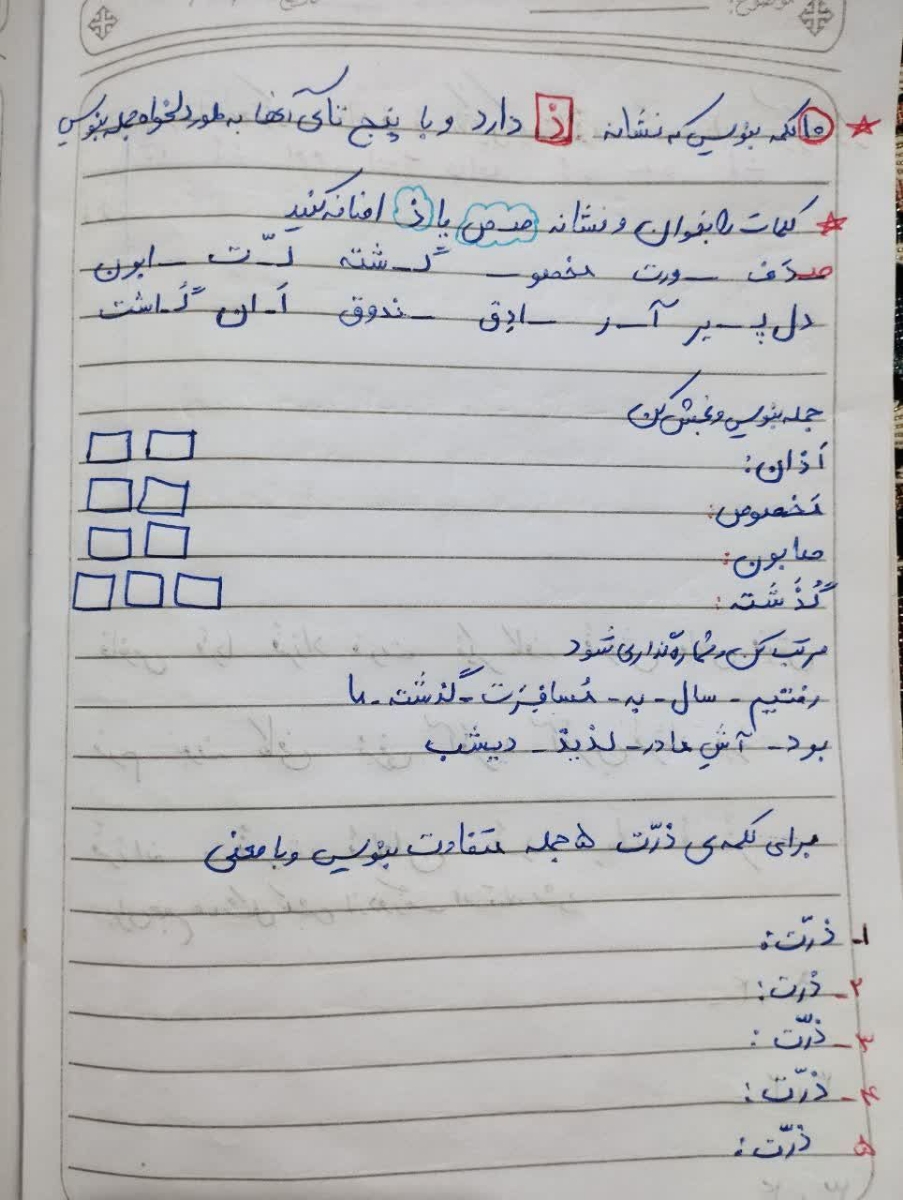 ۱۰ کلمه بنویس که نشانه ذ دارد و با پنج تای آنها به طور دلخواه جمله بنویس
کلمات را بخوان و نشانه صـ ص یا ذ اضافه کنید
صدَف ـورت مخصوـ گـشته ـرّت ـابون
دل پـیر آـر ـادِق ـندوق اَـان گُـاشت
جمله بنویس و بخش کن
اَذان:
مَخصوص:
صابون:
گُذَشته:
مرتب کن و شماره گذاری شود
رفتیم - سال - به - مُسافِرَت - گذشته - ما
بود - آشِ مادر - لذیذ - دیشب
برای کلمه ی ذرّت ۵ جمله متفاوت بنویس و با معنی
۱- ذرّت:
۲- ذرت:
۳- ذرّت:
۴- ذرّت:
۵ ذرّت: